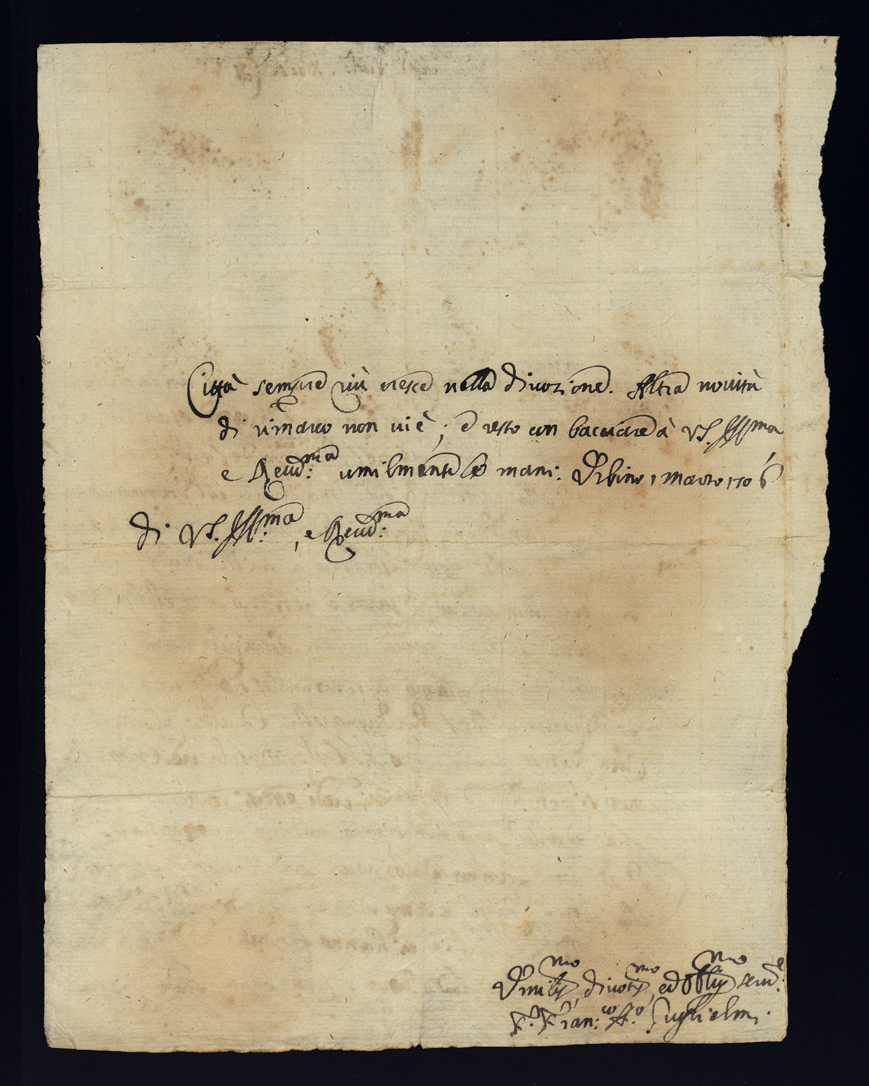 Città sempre più cresce nella divozione. Altra novità
di rimarco non vi è; e resto con baciare à VS. Illma
e Reudma: umilmente le mani: Urbino 1 Marzo 1706
di VS. Illma:, e Reudma:
Umilismo divotismo ed obbligmo seru:e
F. Fran:co Ao: Guglielmi.